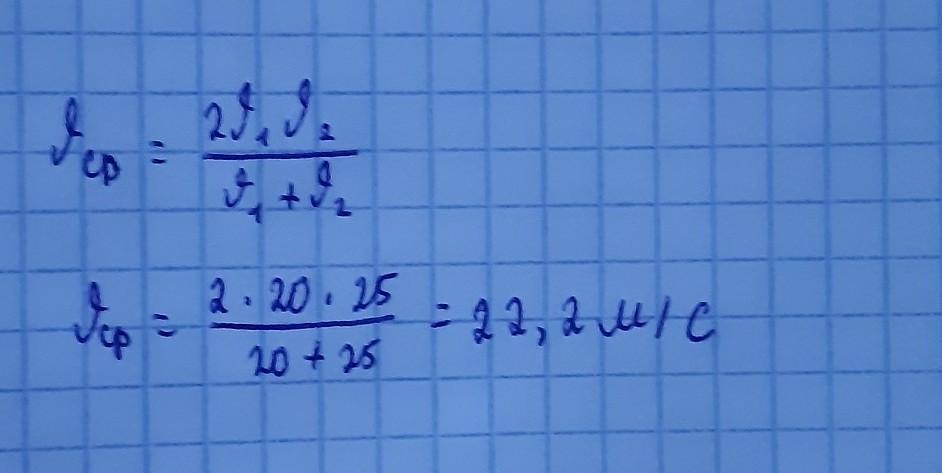 ϑср = 2ϑ₁ϑ₂ / ϑ₁ + ϑ₂
ϑср = 2 · 20 · 25 / 20 + 25 = 22,2 м/с